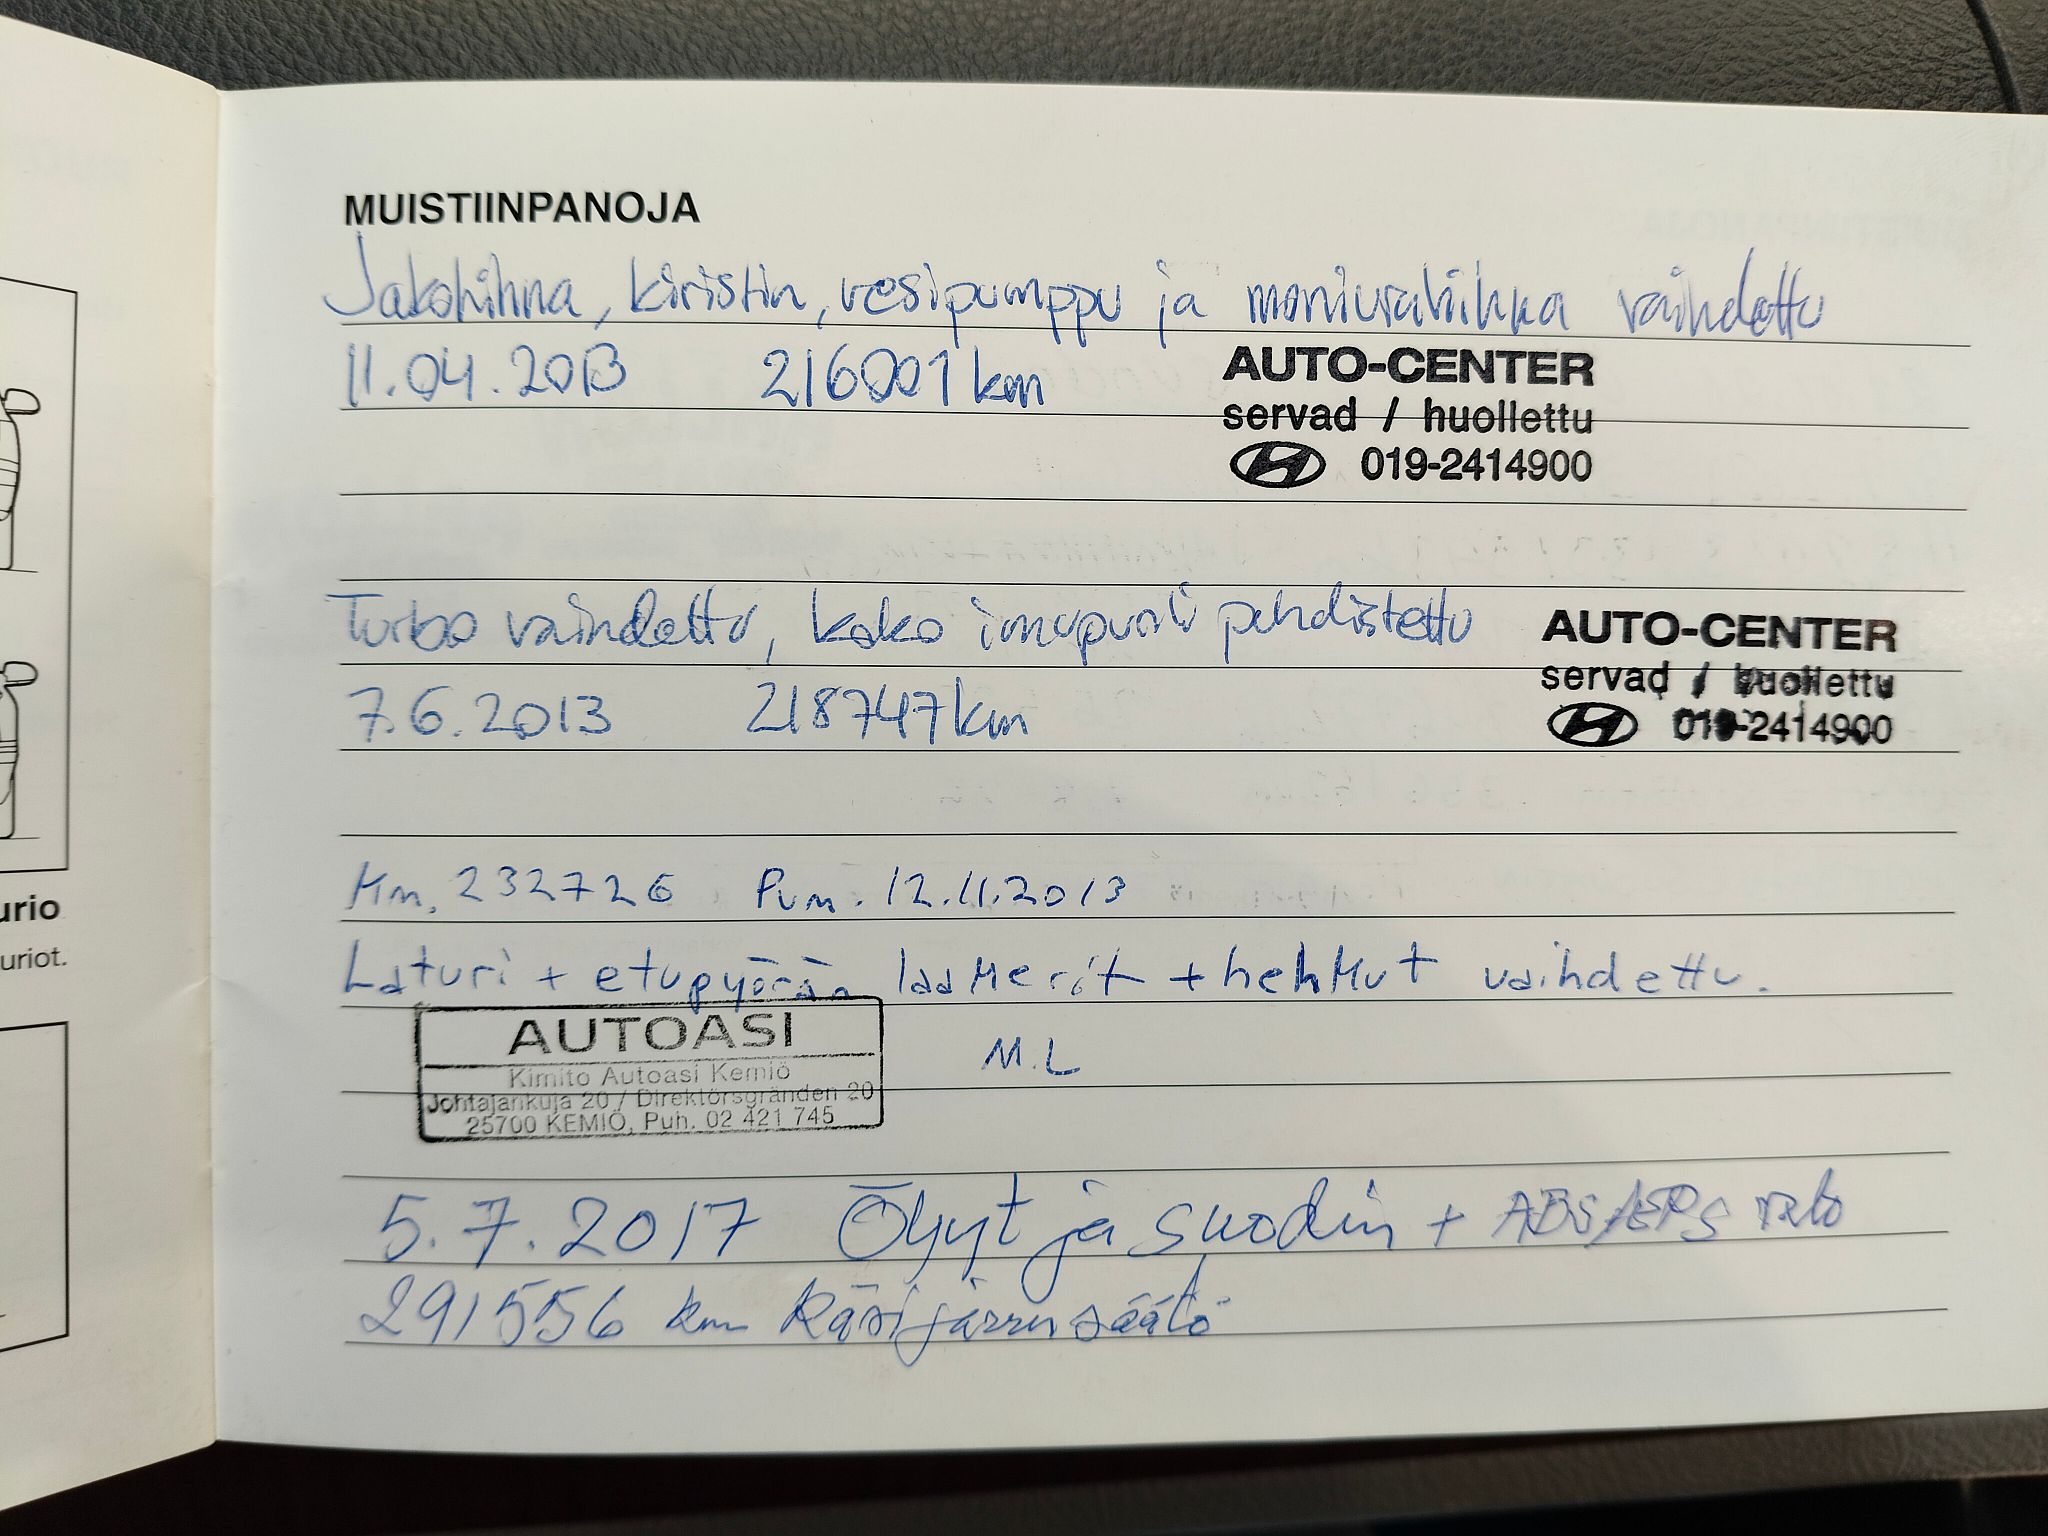 MUISTIINPANOJA
Jakohihna, kiristin, vesipumppu ja moniurahihna vaihdettu
11.04.2013 216001 km
AUTO-CENTER
servad / huollettu
019-2414900
Turbo vaihdettu, koko imupuoli puhdistettu
7.6.2013 218747 km
AUTO-CENTER
servad / huollettu
019-2414900
Km. 232726 Pvm. 12.11.2013
Laturi + etupyörän laakerit + hehkut vaihdettu.
M.L
AUTOASI
Kimito Autoasi Kemiö
Johtajankuja 20 / Direktörsgränden 20
25700 KEMIÖ, Puh. 02 421 745
5.7.2017 Öljyt ja suodin + ABS/ valo
291556 km Käsijarrun säätö
urio
uriot.